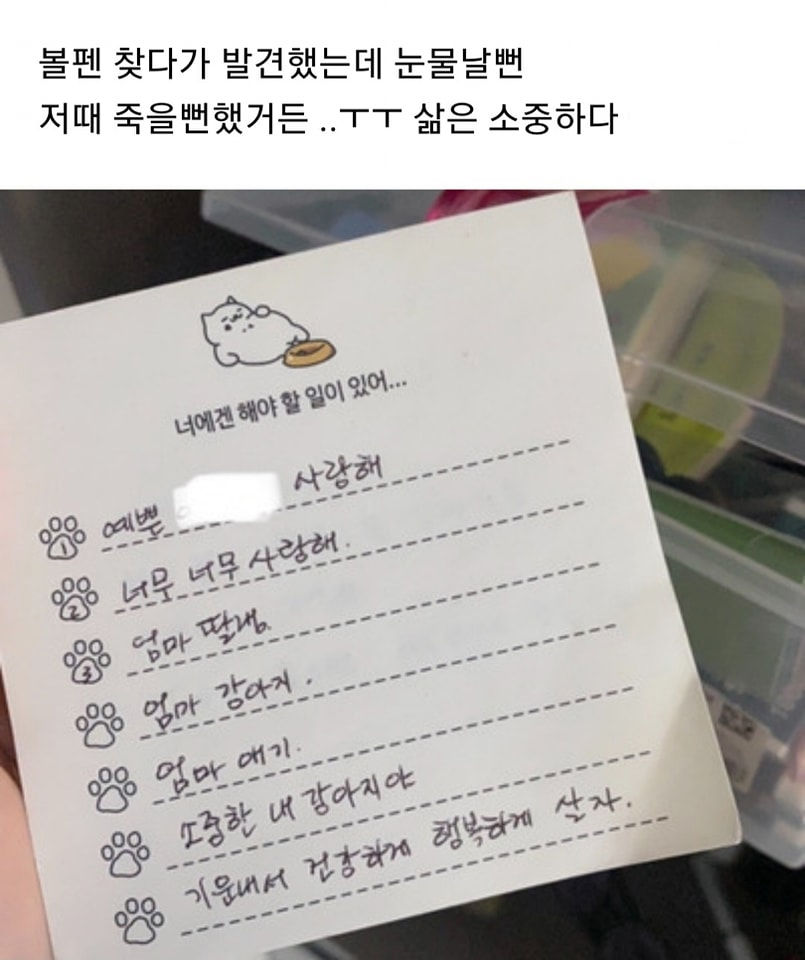 볼펜 찾다가 발견했는데 눈물날뻔
저때 죽을뻔했거든 ..ㅜㅜ 삶은 소중하다
너에겐 해야 할 일이 있어...
1 예쁜 사랑해
2 너무 너무 사랑해.
3 엄마 딸램.
엄마 강아지.
엄마 애기.
소중한 내 강아지야
기운내서 건강하게 행복하게 살자.